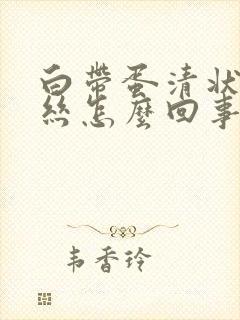 白帶蛋清狀
絲怎麼回事
韦香玲